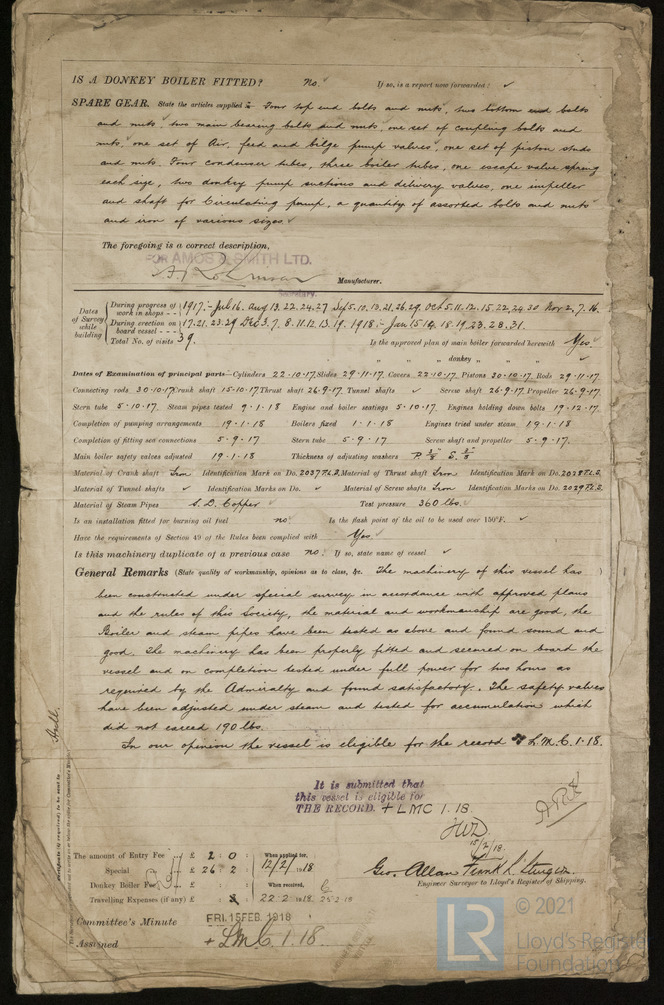 IS A DONKEY BOILER FITTED? No. If so, is a report now forwarded? ✓
SPARE GEAR. State the articles supplied:- Four top end bolts and nuts, two bottom end bolts
and nuts, two main bearing bolts and nuts, one set of coupling bolts and
nuts, one set of Air, feed and bilge pump valves, one set of piston studs
and nuts. Four condenser tubes, three boiler tubes, one escape valve spring
each size, two donkey pump suctions and delivery valves, one impeller
and shaft for Circulating pump, a quantity of assorted bolts and nuts
and iron of various sizes.
The foregoing is a correct description,
FOR AMOS & SMITH LTD.
Manufacturer.
Secretary.
Dates of Survey while building
During progress of work in shops - - 1917:- July 16. Aug 13. 22. 24. 27 Sep 5. 10. 13. 21. 26. 29. Oct 5. 11. 12. 15. 22. 24. 30 Nov 2. 7. 16.
During erection on board vessel - - - 17. 21. 23. 29 Dec 3. 7. 8. 11. 12. 13. 19. 1918:- Jan 15 18. 19. 23. 28. 31.
Total No. of visits 39. Is the approved plan of main boiler forwarded herewith Yes
" " " donkey " " " ✓
Dates of Examination of principal parts—Cylinders 22-10-17. Slides 29-11-17. Covers 22-10-17. Pistons 30-10-17. Rods 29-11-17.
Connecting rods 30-10-17 Crank shaft 15-10-17 Thrust shaft 26-9-17. Tunnel shafts ✓ Screw shaft 26-9-17. Propeller 26-9-17.
Stern tube 5-10-17. Steam pipes tested 9-1-18 Engine and boiler seatings 5-10-17. Engines holding down bolts 19-12-17.
Completion of pumping arrangements 19-1-18 Boilers fixed 1-1-18 Engines tried under steam 19-1-18
Completion of fitting sea connections 5-9-17. Stern tube 5-9-17. Screw shaft and propeller 5-9-17.
Main boiler safety valves adjusted 19-1-18 Thickness of adjusting washers P. 3/8" S. 3/8"
Material of Crank shaft Iron Identification Mark on Do. 2037 F.L.S. Material of Thrust shaft Iron Identification Mark on Do. 2028 F.L.S.
Material of Tunnel shafts ✓ Identification Marks on Do. ✓ Material of Screw shafts Iron Identification Marks on Do. 2029 F.L.S.
Material of Steam Pipes S. D. Copper Test pressure 360 lbs.
Is an installation fitted for burning oil fuel no. Is the flash point of the oil to be used over 150°F. ✓
Have the requirements of Section 49 of the Rules been complied with Yes
Is this machinery duplicate of a previous case no. If so, state name of vessel ✓
General Remarks (State quality of workmanship, opinions as to class, &c. The machinery of this vessel has )
been constructed under special survey in accordance with approved plans
and the rules of this Society, the material and workmanship are good, the
Boiler and steam pipes have been tested as above and found sound and
good. The machinery has been properly fitted and secured on board the
vessel and on completion tested under full power for two hours as
required by the Admiralty and found satisfactory. The safety valves
have been adjusted under steam and tested for accumulation which
did not exceed 190 lbs.
In our opinion the vessel is eligible for the record L.M.C. 1.18.
Hull.
It is submitted that
this vessel is eligible for
THE RECORD. + LMC 1.18.
JWD
15/2/18.
The amount of Entry Fee £ 2 : 0 : When applied for,
Special £ 26 : 2 : 12/2/1918
Donkey Boiler Fee £ : : When received,
Travelling Expenses (if any) £ : : 22.2.1918 25.2.18
Geo. Allan Frank L. Sturgeon
Engineer Surveyor to Lloyd's Register of Shipping.
Committee's Minute FRI. 15 FEB. 1918
Assigned + L.M.C. 1.18.
© 2021
LR
Lloyd's Register
Foundation